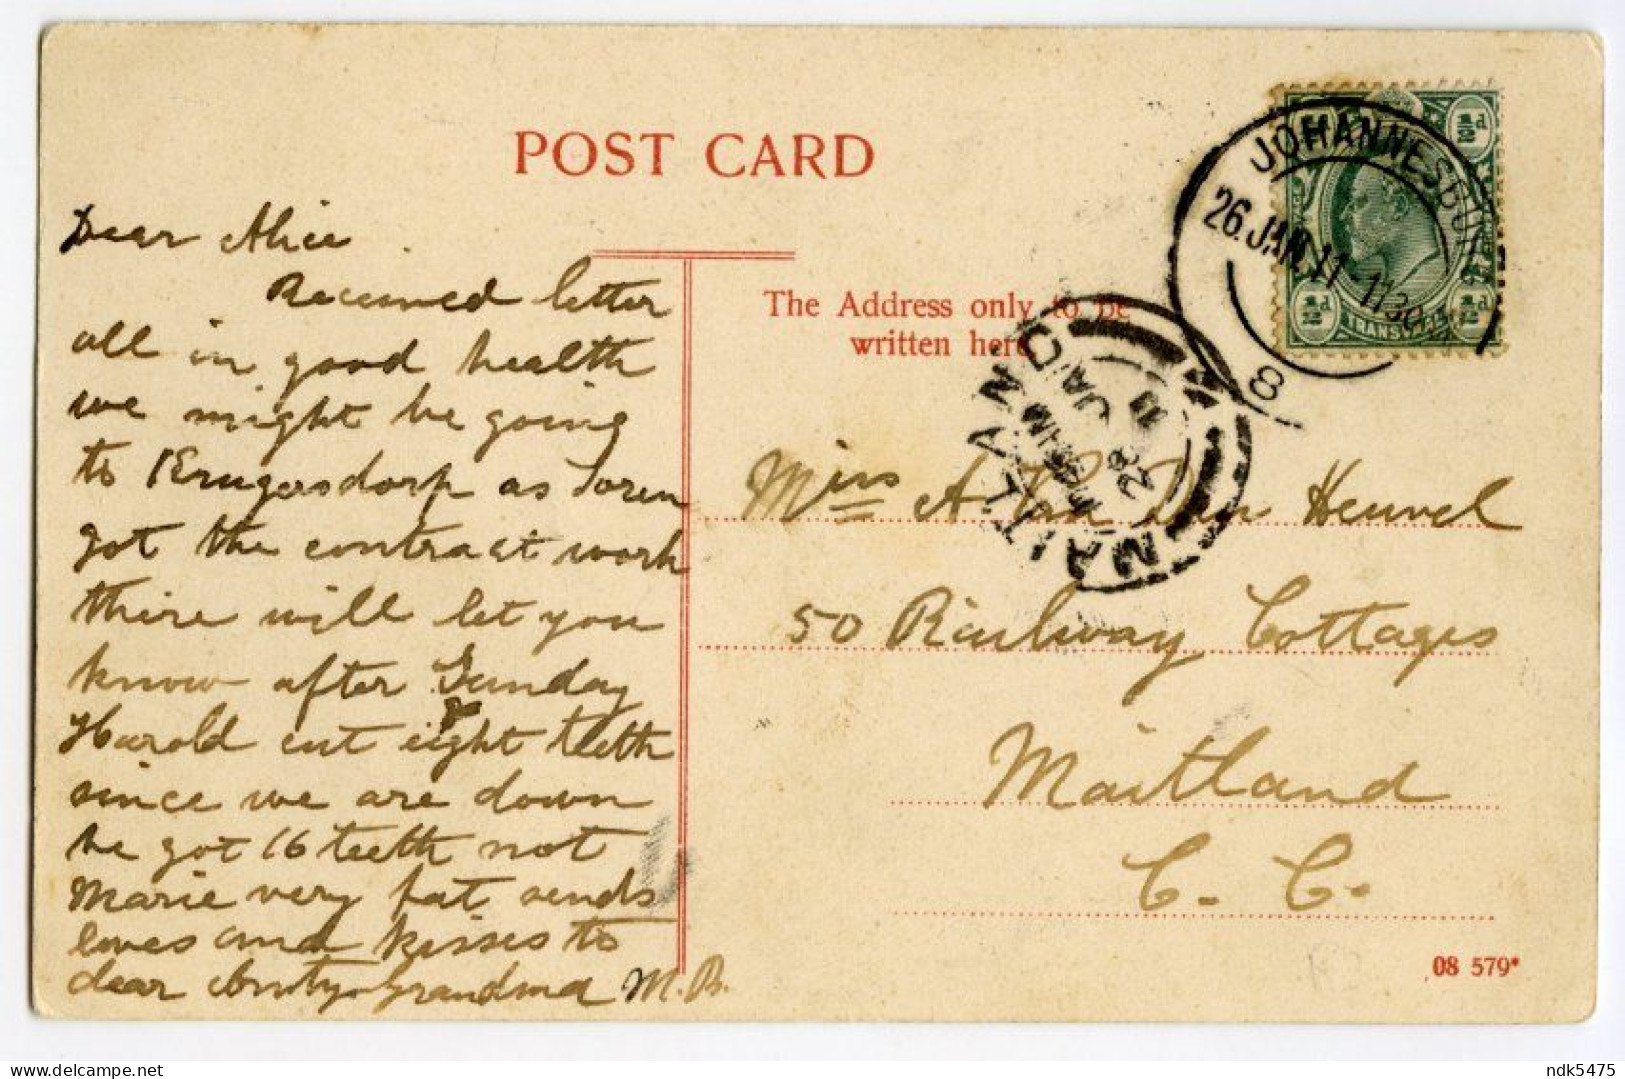 POST CARD
Dear Alice
Received letter
all in good health
we might be going
to Krugersdorp as Soren
got the contract work
there will let you
know after Sunday
Harold cut eight teeth
since we are down
he got 16 teeth not
Marie very fat sends
loves and kisses to
dear Aunty Grandma M.B.
The Address only to be
written here
JOHANNESBURG
26.JAN.11 1130
8
MAITLAND
JA
28
11
½d ½d
½d TRANSVAAL ½d
Miss A. Van Den Heuvel
50 Railway Cottages
Maitland
C. C.
08 579*
ndk5475